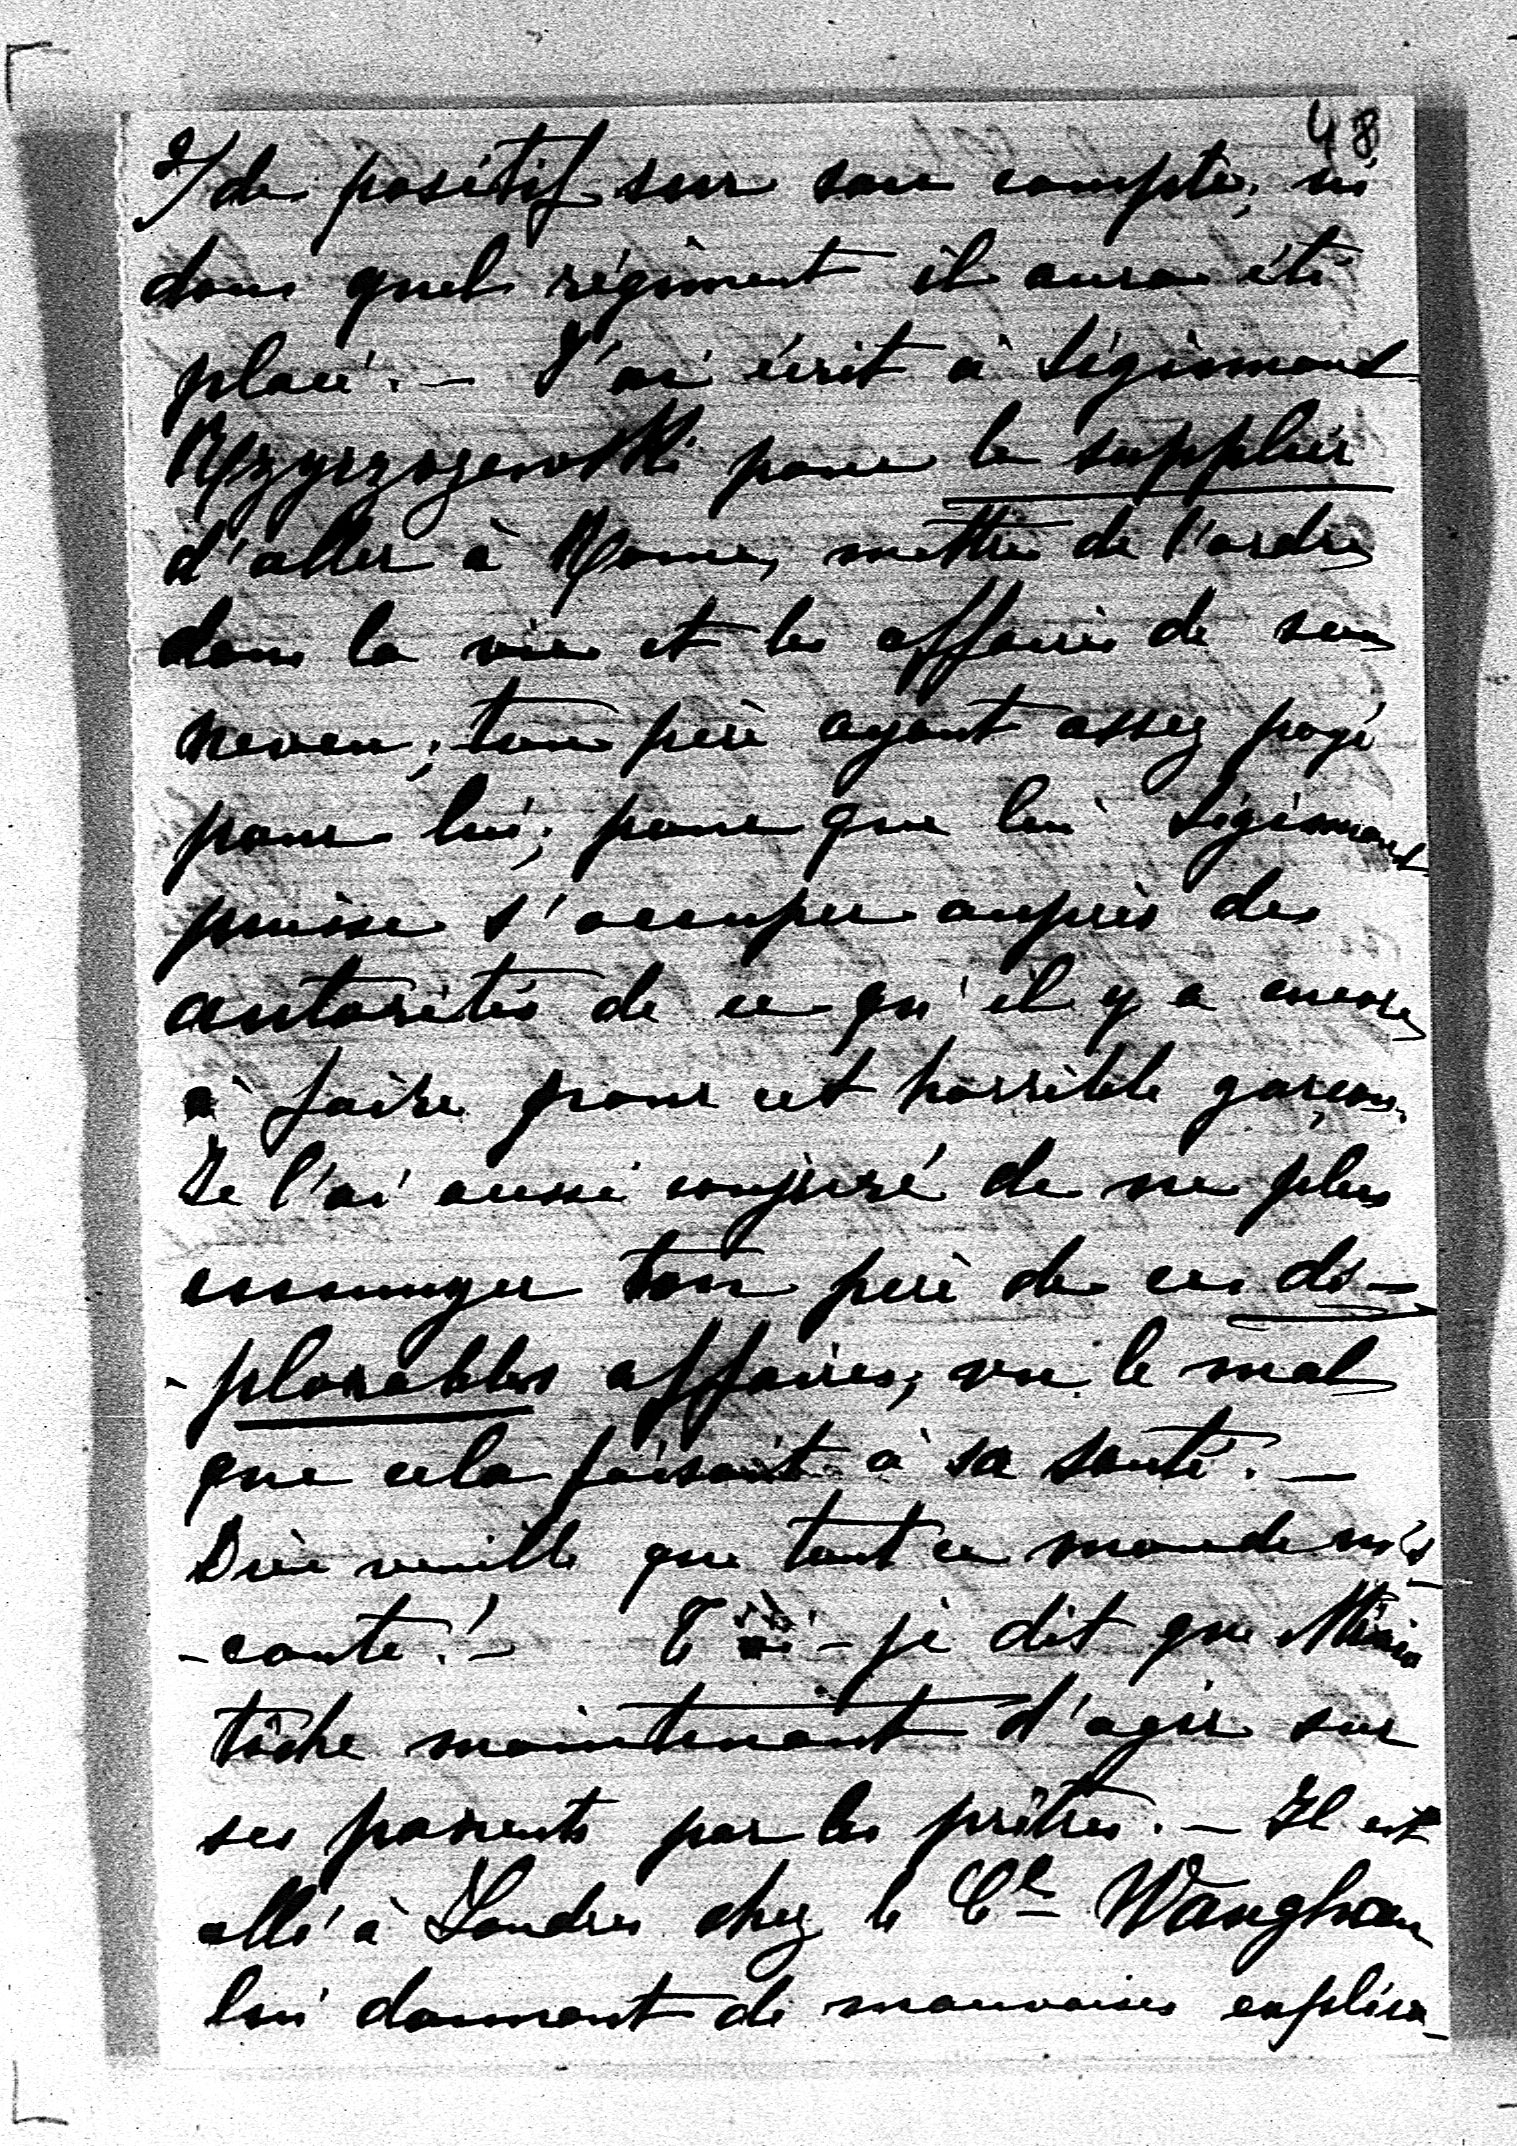 48
2/ de positif sur son compte, ni
dans quel régiment il aura été
placé. — J'ai écrit à Sigismond
Rzyszczewski pour le supplier
d'aller à Rome, mettre de l'ordre
dans la vie et les affaires de son
neveu; ton père ayant assez payé
pour lui; pour que lui Sigismond
puisse s'occuper auprès des
autorités de ce qu'il y a encore
à faire pour cet horrible garçon.
Je l'ai aussi conjuré de ne plus
ennuyer ton père de ces dé-
-plorables affaires, vu le mal
que cela faisait à sa santé. —
Dieu veuille que tout ce monde m'é-
-coute! — T'ai-je dit que
tâche maintenant d'agir sur
ses parents par les prêtres. — Il est
allé à Londres chez le Cl Waughan
lui donnant de mauvaises explica-